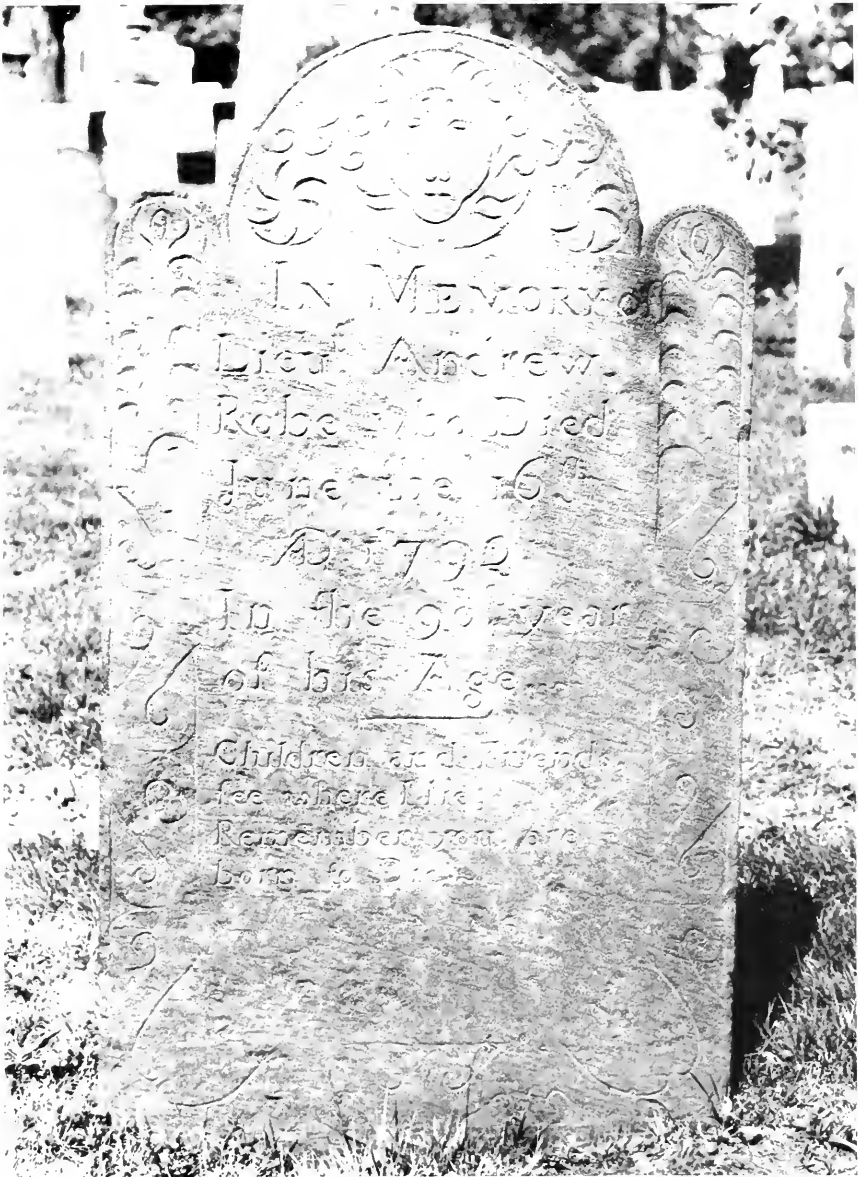 IN MEMORY of
Lieut. Andrew
Robe who Died
June the 16th
AD 1792
In the 90th year
of his Age
Children and Friends
see where I lie
Remember you are
born to Die